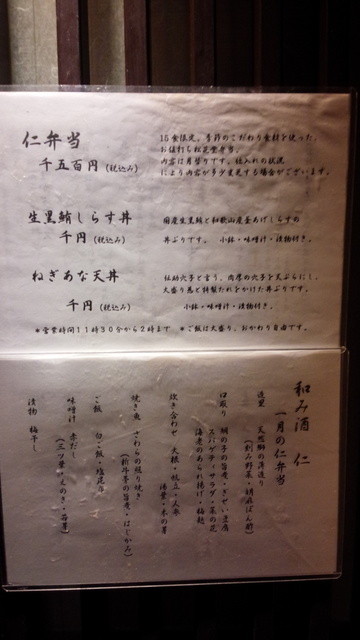 仁弁当
千五百円（税込み）
15食限定。季節のこだわり食材を使った、
お値打ち松花堂弁当。
内容は月替りです。仕入れの状況
により内容が多少変更する場合がございます。
生黒鮪しらす丼
千円（税込み）
国産生黒鮪と和歌山産釜あげしらすの
丼ぶりです。 小鉢・味噌汁・漬物付き。
ねぎあな天丼
千円（税込み）
伝助穴子と言う、肉厚の穴子を天ぷらにし、
大盛り葱と特製たれをかけた丼ぶりです。
小鉢・味噌汁・漬物付き。
＊営業時間11時30分から2時まで ＊ご飯は大盛り、おかわり自由です。
和み酒 仁
一月の仁弁当
造里 天然鰤の薄造り
（刻み野菜・胡麻ぽん酢）
口取り 鯛の子の旨煮・ぎせい豆腐
スパゲティサラダ・菜の花
海老のあられ揚げ・梅麩
炊き合わせ 大根・帆立・人参
湯葉・木の芽
焼き魚 さわらの照り焼き
（新牛蒡の旨煮・はじかみ）
ご飯 白ご飯・塩昆布
味噌汁 赤だし
（三ツ葉・えのき・若芽）
漬物 梅干し